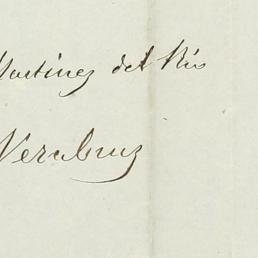 Martinez del Rio
Veracruz